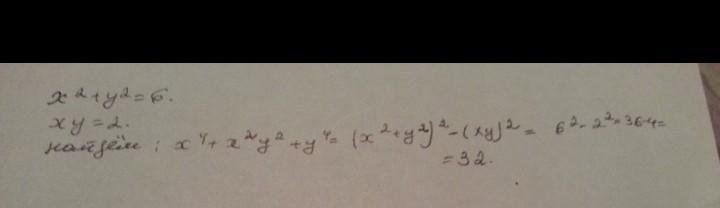 x² + y² = 6.
xy = 2.
найдём: x⁴ + x²y² + y⁴ = (x² + y²)² - (xy)² = 6² - 2² = 36-4 =
= 32.